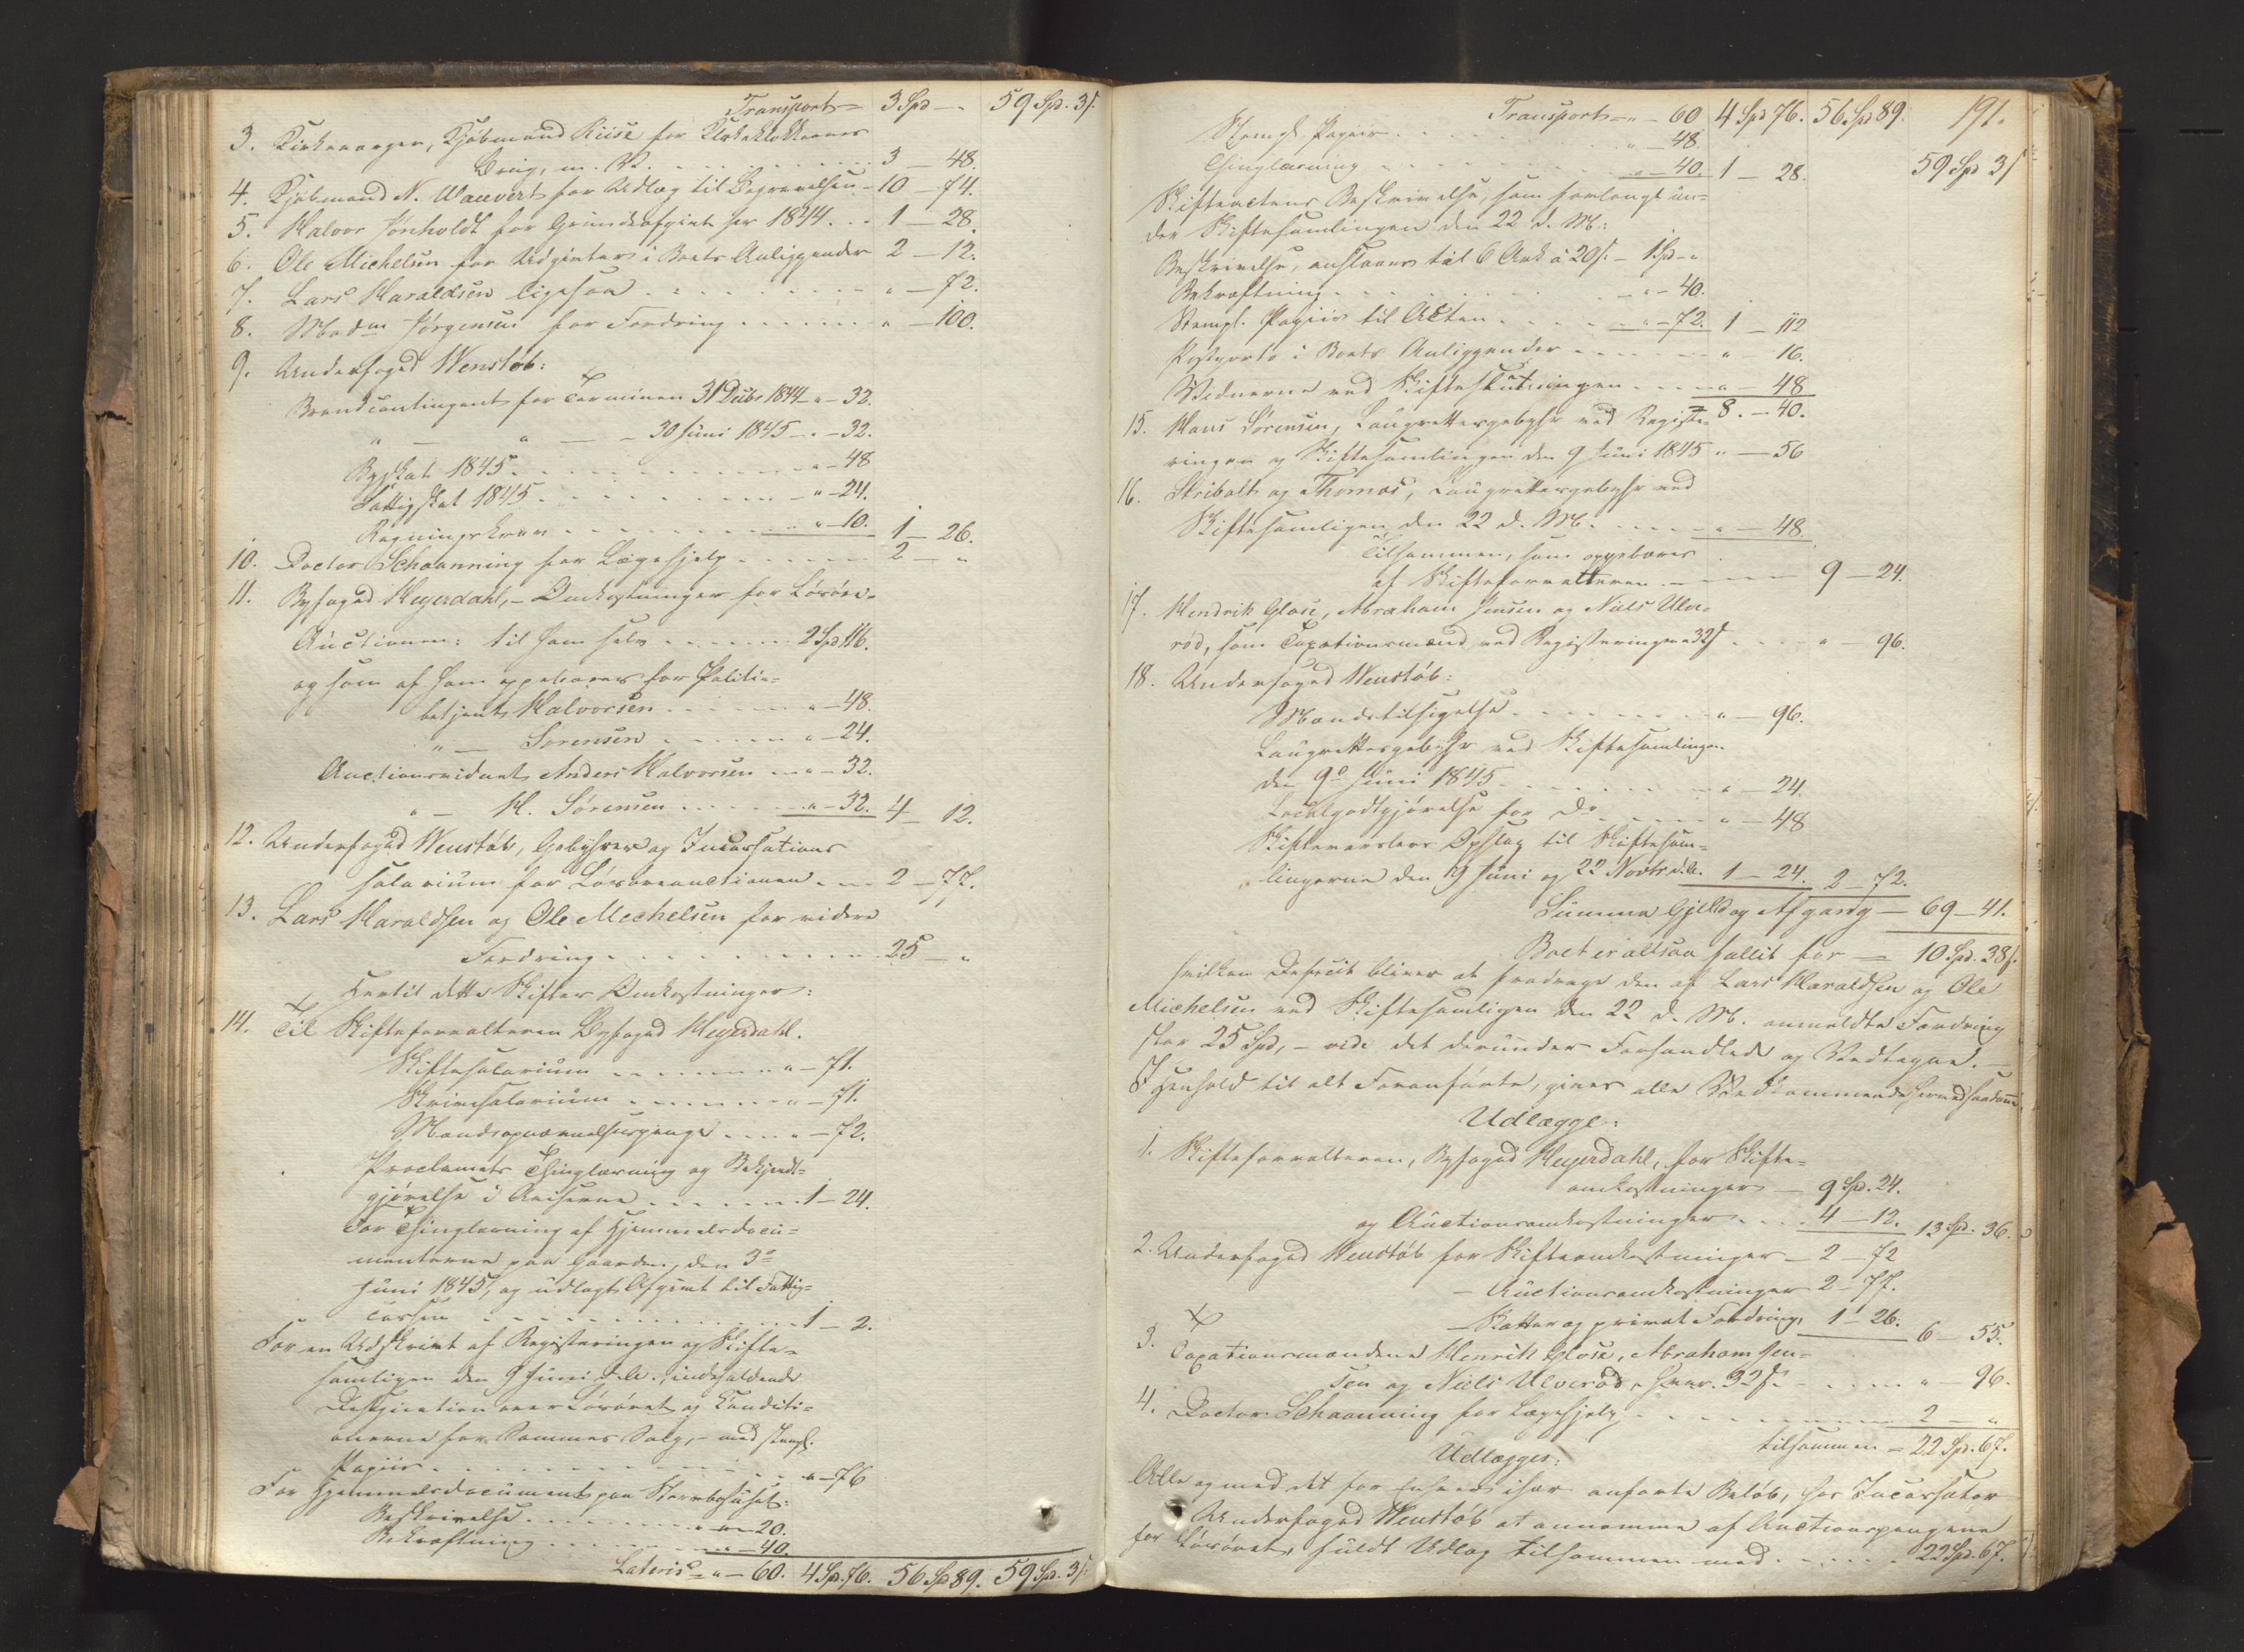 Transport = 3 Spd - " 59 Spd. 3 s.
3. Kirkeværgen, Kjøbmand Riise for Kirkeklokkernes
Brug, m. V. 3 - 48.
4. Kjøbmand N. Wauvert for Udlæg til Begravelsen - 10 - 74.
5. Halvor Jønholdt for Grundeafgivt for 1844 1 - 28.
6. Ole Michelsen for Udgivter i Boets Anliggender 2 - 12.
7. Lars Haraldsen ligesaa " - 72.
8. Madm Jørgensen for Fordring " - 100.
9. Underfoged Wenstøb:
Brandcontingent for Terminen 31 Decbr 1844 - " - 32.
" - " - 30 Juni 1845 - " - 32.
Byskat 1845 " - 48
Fattigskat 1845 " - 24.
Regningskrav " - 10. 1 - 26.
10. Doctor Schaanning for Lægehjelp 2 - "
11. Byfoged Heyerdahl, - Omkostninger for Løsøre-
Auctionen: til ham selv 2 Spd 116.
og som af ham oppebæres for Politie-
betjent Halvorsen " - 48.
" - Sørensen " - 24.
Auctionsvidnet Anders Halvorsen " - 32.
" - H. Sørensen " - 32. 4 - 12.
12. Underfoged Wenstøb, Gebyhrer og Incassations
salarium for Løsøreauctionen 2 - 77.
13. Lars Haraldsen og Ole Mechelsen for videre
Fordring 25 - "
Hertil dette Skiftes Omkostninger:
14. Til Skifteforvalteren Byfoged Heyerdahl.
Skiftesalarium " - 71.
Skrivesalarium " - 71.
Mandsopnævnelsespenge " - 72.
Proclamets Thinglæsning og Bekjendt-
gjørelse i Aviserne 1 - 24.
For Thinglæsning af Hjemmelsdocu-
menterne paa Gaarden, den 3de
Juni 1845, og udlagt Afgivt til Fattig-
cassen 1 - 2.
For en Udskrivt af Registeringen og Skifte-
samlingen den 9 Juni d. A., indeholdende
Designation over Løsøret og Conditi-
onerne for Sammes Salg, - med stempl.
Papiir " - 76
For Hjemmelsdocument paa Stervbohuset:
Beskrivelse " - 20.
Bekræftning " - 40.
Lateris = " - 60. 4 Sp. 76. 56 Sp 89. 59 Spd. 3 s.
Transport = " - 60 4 Spd 76. 56 Spd 89. 191.
Stempl. Papiir " - 48.
Thinglæsning " - 40. 1 - 28. 59 Spd 3 s
Skifteactens Beskrivelse, som forlangt un-
der Skiftesamlingen den 22 d. M:
Beskrivelse, anslaaes til 6 Ark à 20 s. - 1 Sp - "
Bekræftning " - 40.
Stempl. Papiir til Acten " - 72. 1 - 112
Postporto i Boets Anliggender " - 16.
Vidnerne ved Skifteslutningen " - 48
= 8. - 40.
15. Hans Sørensen, Laugrettesgebyhr ved Registe-
ringen og Skiftesamlingen den 9 Juni 1845 " - 56
16. Skibolt og Thomas, Laugrettesgebyhr ved
Skiftesamligen den 22 d. M. " - 48.
Tilsammen, som oppebæres
af Skifteforvalteren 9 - 24.
17. Hendrik Glose, Abraham Jensen og Niels Ulve-
rød, som Taxationsmænd ved Registeringen a 32 s " - 96.
18. Underfoged Wenstøb:
Mandstilsigelse " - 96.
Laugrettesgebyhr ved Skiftesamlingen
den 9de Juni 1845 " - 24.
Localgodtgjørelse for Do " - 48
Skiftevarslers Opslag til Skiftesam-
lingerne den 9 Juni og 22 Novbr d. A. 1 - 24. 2 - 72.
Summa Gjeld og Afgang - 69 - 41.
Boet er altsaa fallit for = 10 Spd. 38 s.
hvilken Deficit bliver at fradrage den af Lars Haraldsen og Ole
Michelsen ved Skiftesamligen den 22 d. M. anmeldte Fordring
stor 25 Spd, - vide det derunder Forhandlede og Vedtagne. -
I Henhold til alt Foranførte, gives alle Vedkommende hermed saadanne
Udlægge:
1. Skifteforvalteren, Byfoged Heyerdahl, for Skifte-
omkostninger - 9 Spd. 24.
og Auctionsomkostninger 4 - 12. 13 Spd. 36.
2. Underfoged Wenstøb for Skifteomkostninger - 2 - 72
- Auctionsomkostninger 2 - 77.
- Skatter og privat Fordring, 1 - 26. 6 - 55.
3. Taxationsmændene Henrik Glose, Abraham Jen-
sen og Niels Ulverød, hver 32 s. " - 96.
4. Doctor Schaanning for Lægehjelp 2 - "
tilsammen = 22 Spd. 67.
Udlægges:
Alle og med det for Enhver især anførte Beløb, hos Incassator
Underfoged Wenstøb at annamme af Auctionspengene
for Løsøret, fuldt Udlæg tilsammen med 22 Spd. 67.